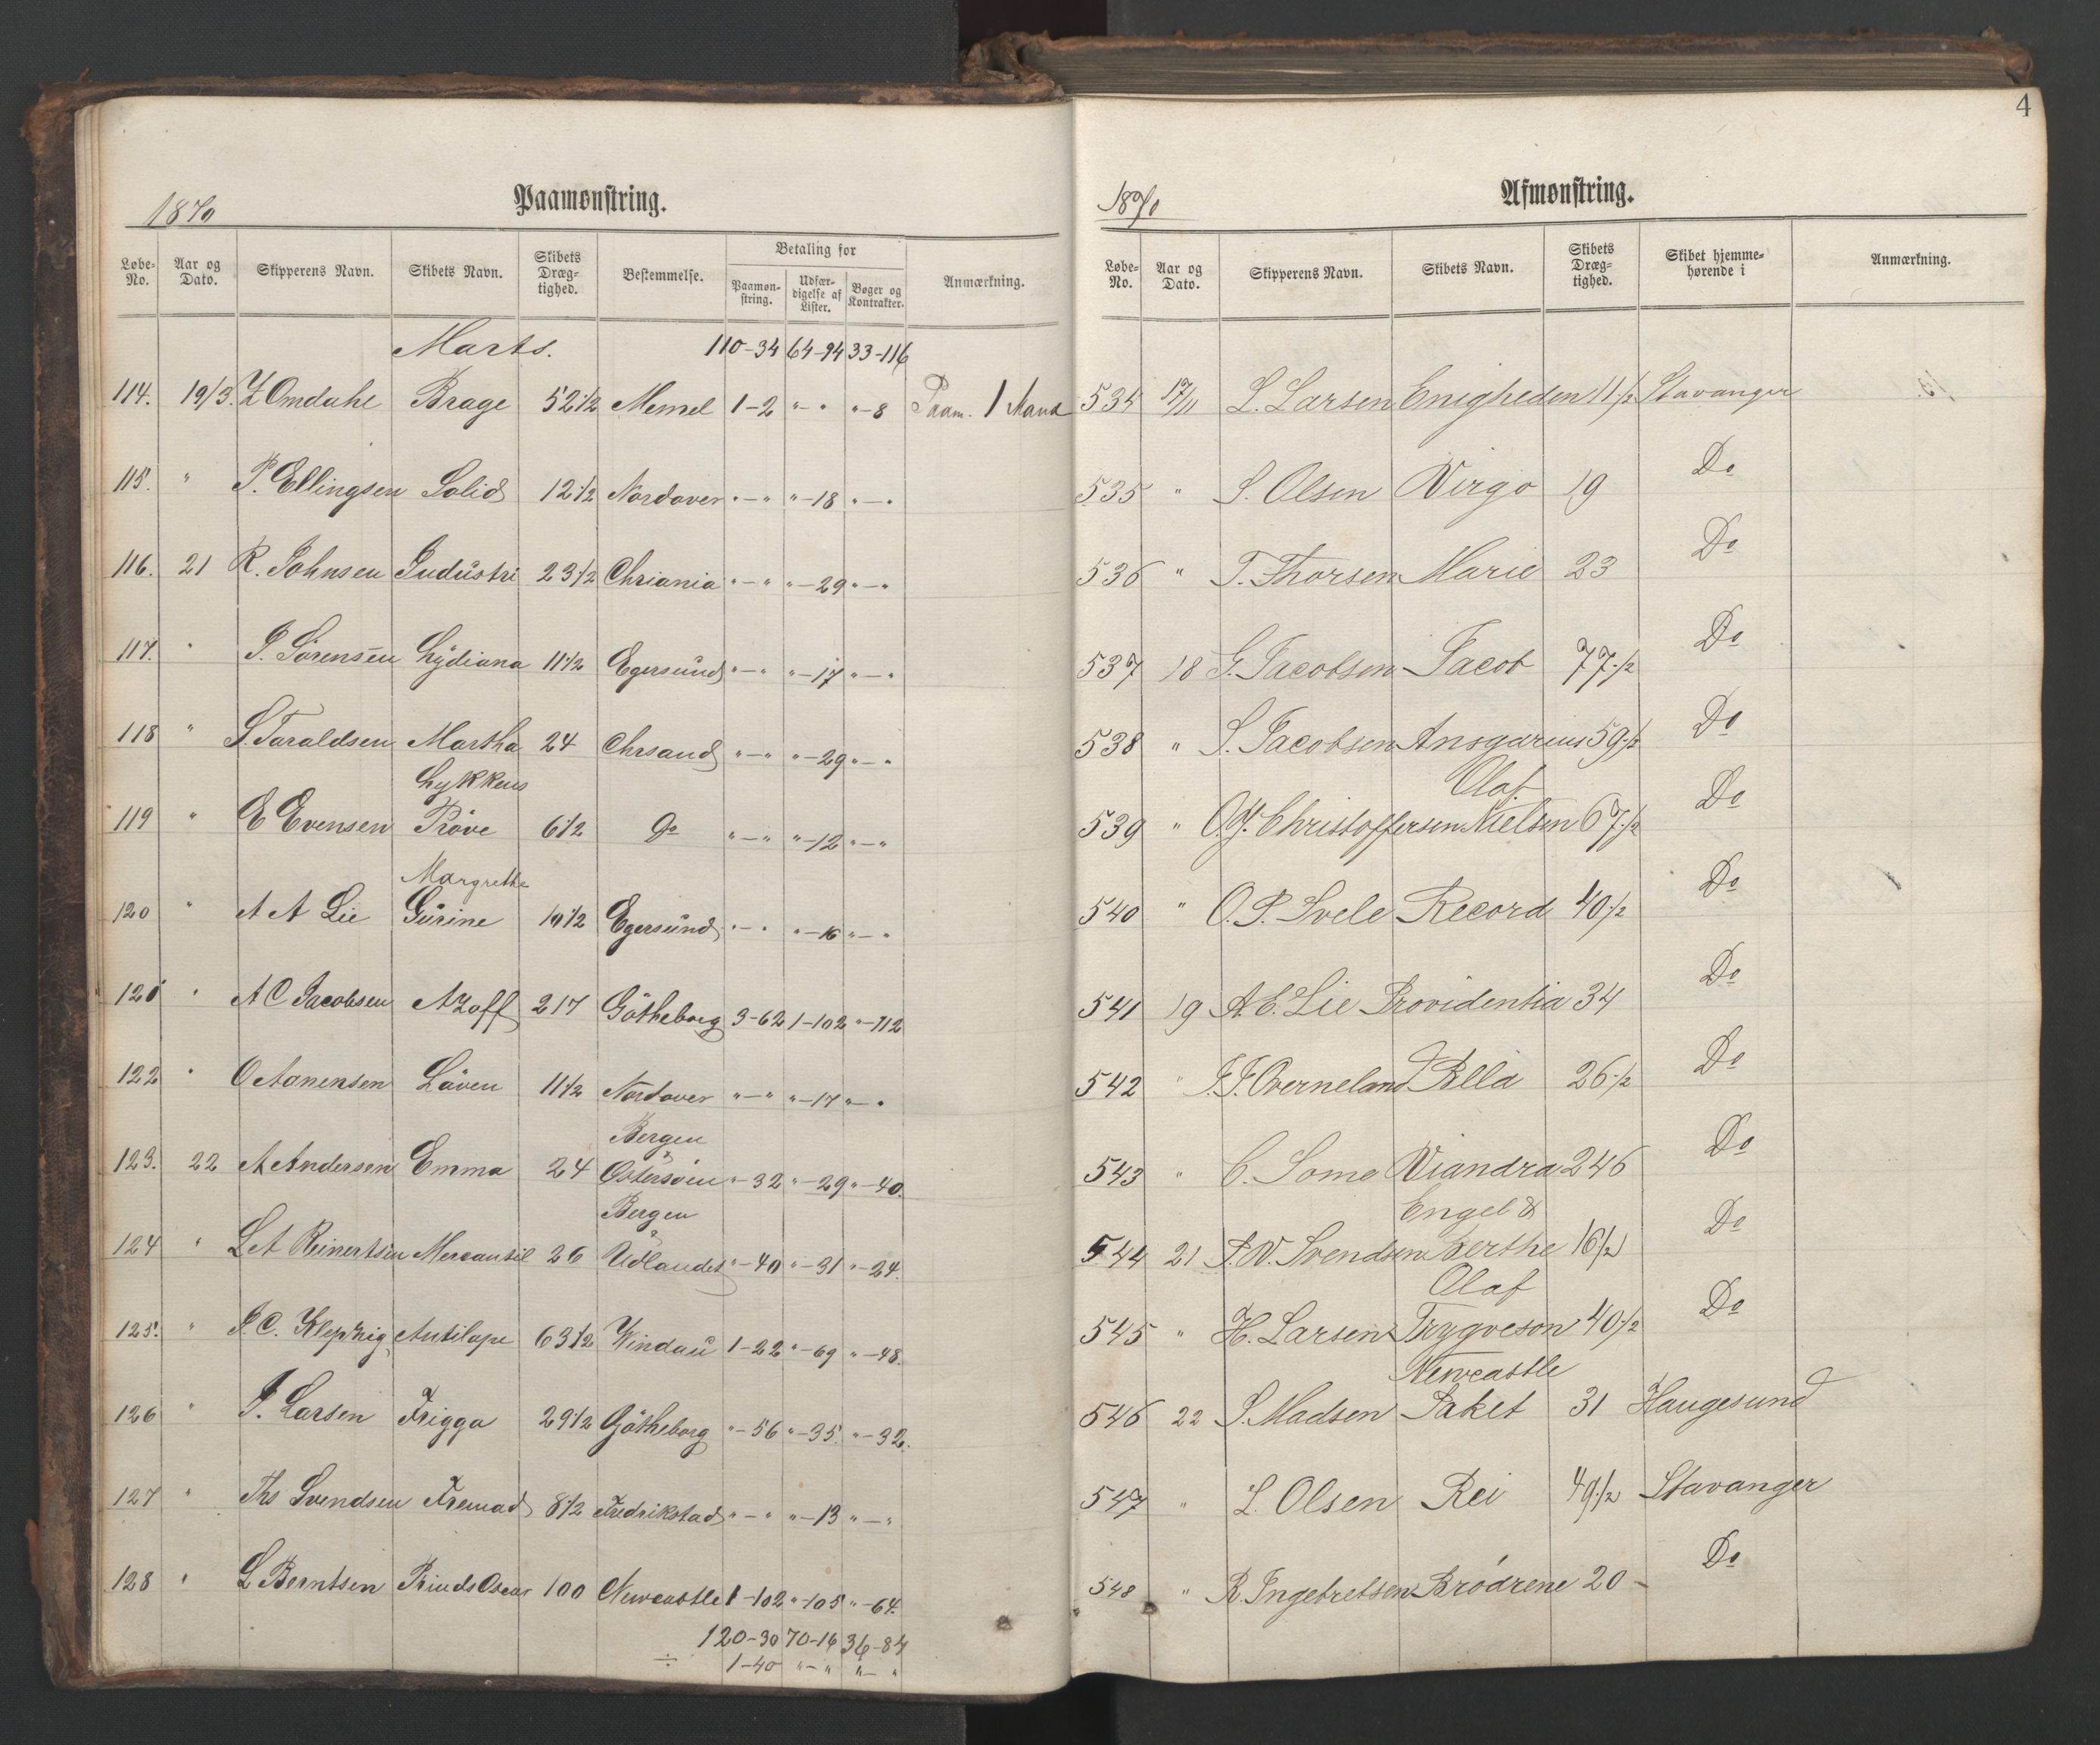 1870
Paamønstring.
Løbe-No. Aar og Dato. Skipperens Navn. Skibets Navn. Skibets Dræg-tighed. Bestemmelse. Betaling for Paamøn-string. Udfær-digelse af Lister. Bøger og Kontrakter. Anmærkning.
Marts. 110-34 64-94 33-116
114. 19/3. Z Omdahl Brage 52 1/2 Memel 1-2 "-" "-8 Paam. 1 Mand
115. " P. Ellingsen Solid 12 1/2 Nordover "-" "-18 "-"
116. 21 R. Johnsen Industri 23 1/2 Chriania "-" "-29 "-"
117. " P. Sörensen Lydiana 11 1/2 Egersund "-" "-17 "-"
118 " S. Taraldsen Martha 24 Chrsand "-" "-29 "-"
119 " E Evensen Lykkens Pröve 6 1/2 Do "-" "-12 "-"
120 " A A Lie Margrethe Gurine 10 1/2 Egersund "-" "-16 "-"
121 " A C Jacobsen Azoff 217 Götheborg 3-62 1-102 "-112
122 " O Aanensen Löven 11 1/2 Nordover "-" "-17 "-"
123. 22 A Andersen Emma 24 Bergen & Östersöen "-32 "-29 "-40.
124 " L A Reinertsen Mercantil 26 Bergen & Udlandet "-40 "-31 "-24.
125. " J. C. Kleptzig Antilope 63 1/2 Windau 1-22 "-69 "-48.
126 " J. Larsen Frigga 29 1/2 Götheborg "-56 "-35. "-32.
127 " Ths Svendsen Fremad 8 1/2 Fredrikstad "-" "-13 "-"
128 " L Berntsen Prinds Oscar 100 Newcastle 1-102 "-105 "-64.
120-30 70-16 36-84
÷ 1-40 "-" "-"
4
1870
Afmønstring.
Løbe-No. Aar og Dato. Skipperens Navn. Skibets Navn. Skibets Dræg-tighed. Skibet hjemme-hørende i Anmærkning.
534 17/11 L. Larsen Enigheden 11 1/2 Stavanger
535 " S. Olsen Virgo 19 Do
536 " T. Thorsen Marie 23 Do
537 18 G. Jacobsen Jacob 77 1/2 Do
538 " S. Jacobsen Ansgarius 59 1/2 Do
539 " Christoffersen Olaf Nielsen 67 1/2 Do
540 " O. P. Svele Record 40 1/2 Do
541 19 A. E. Lie Providentia 34 Do
542 " Overneland Pella 26 1/2 Do
543 " C. Somo Viandra 246 Do
544 21 P. W. Svendsen Engel & Berthe 16 1/2 Do
545 " H. Larsen Olaf Trygveson 40 1/2 Do
546 22 S. Madsen Newcastle Paket 31 Haugesund
547 " L. Olsen Rei 49 1/2 Stavanger
548 " R. Ingebretsen Brödrene 20 - Do